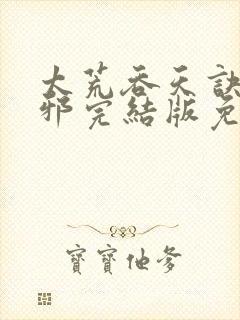 大荒吞天訣
邪完結版免
寶寶他爹